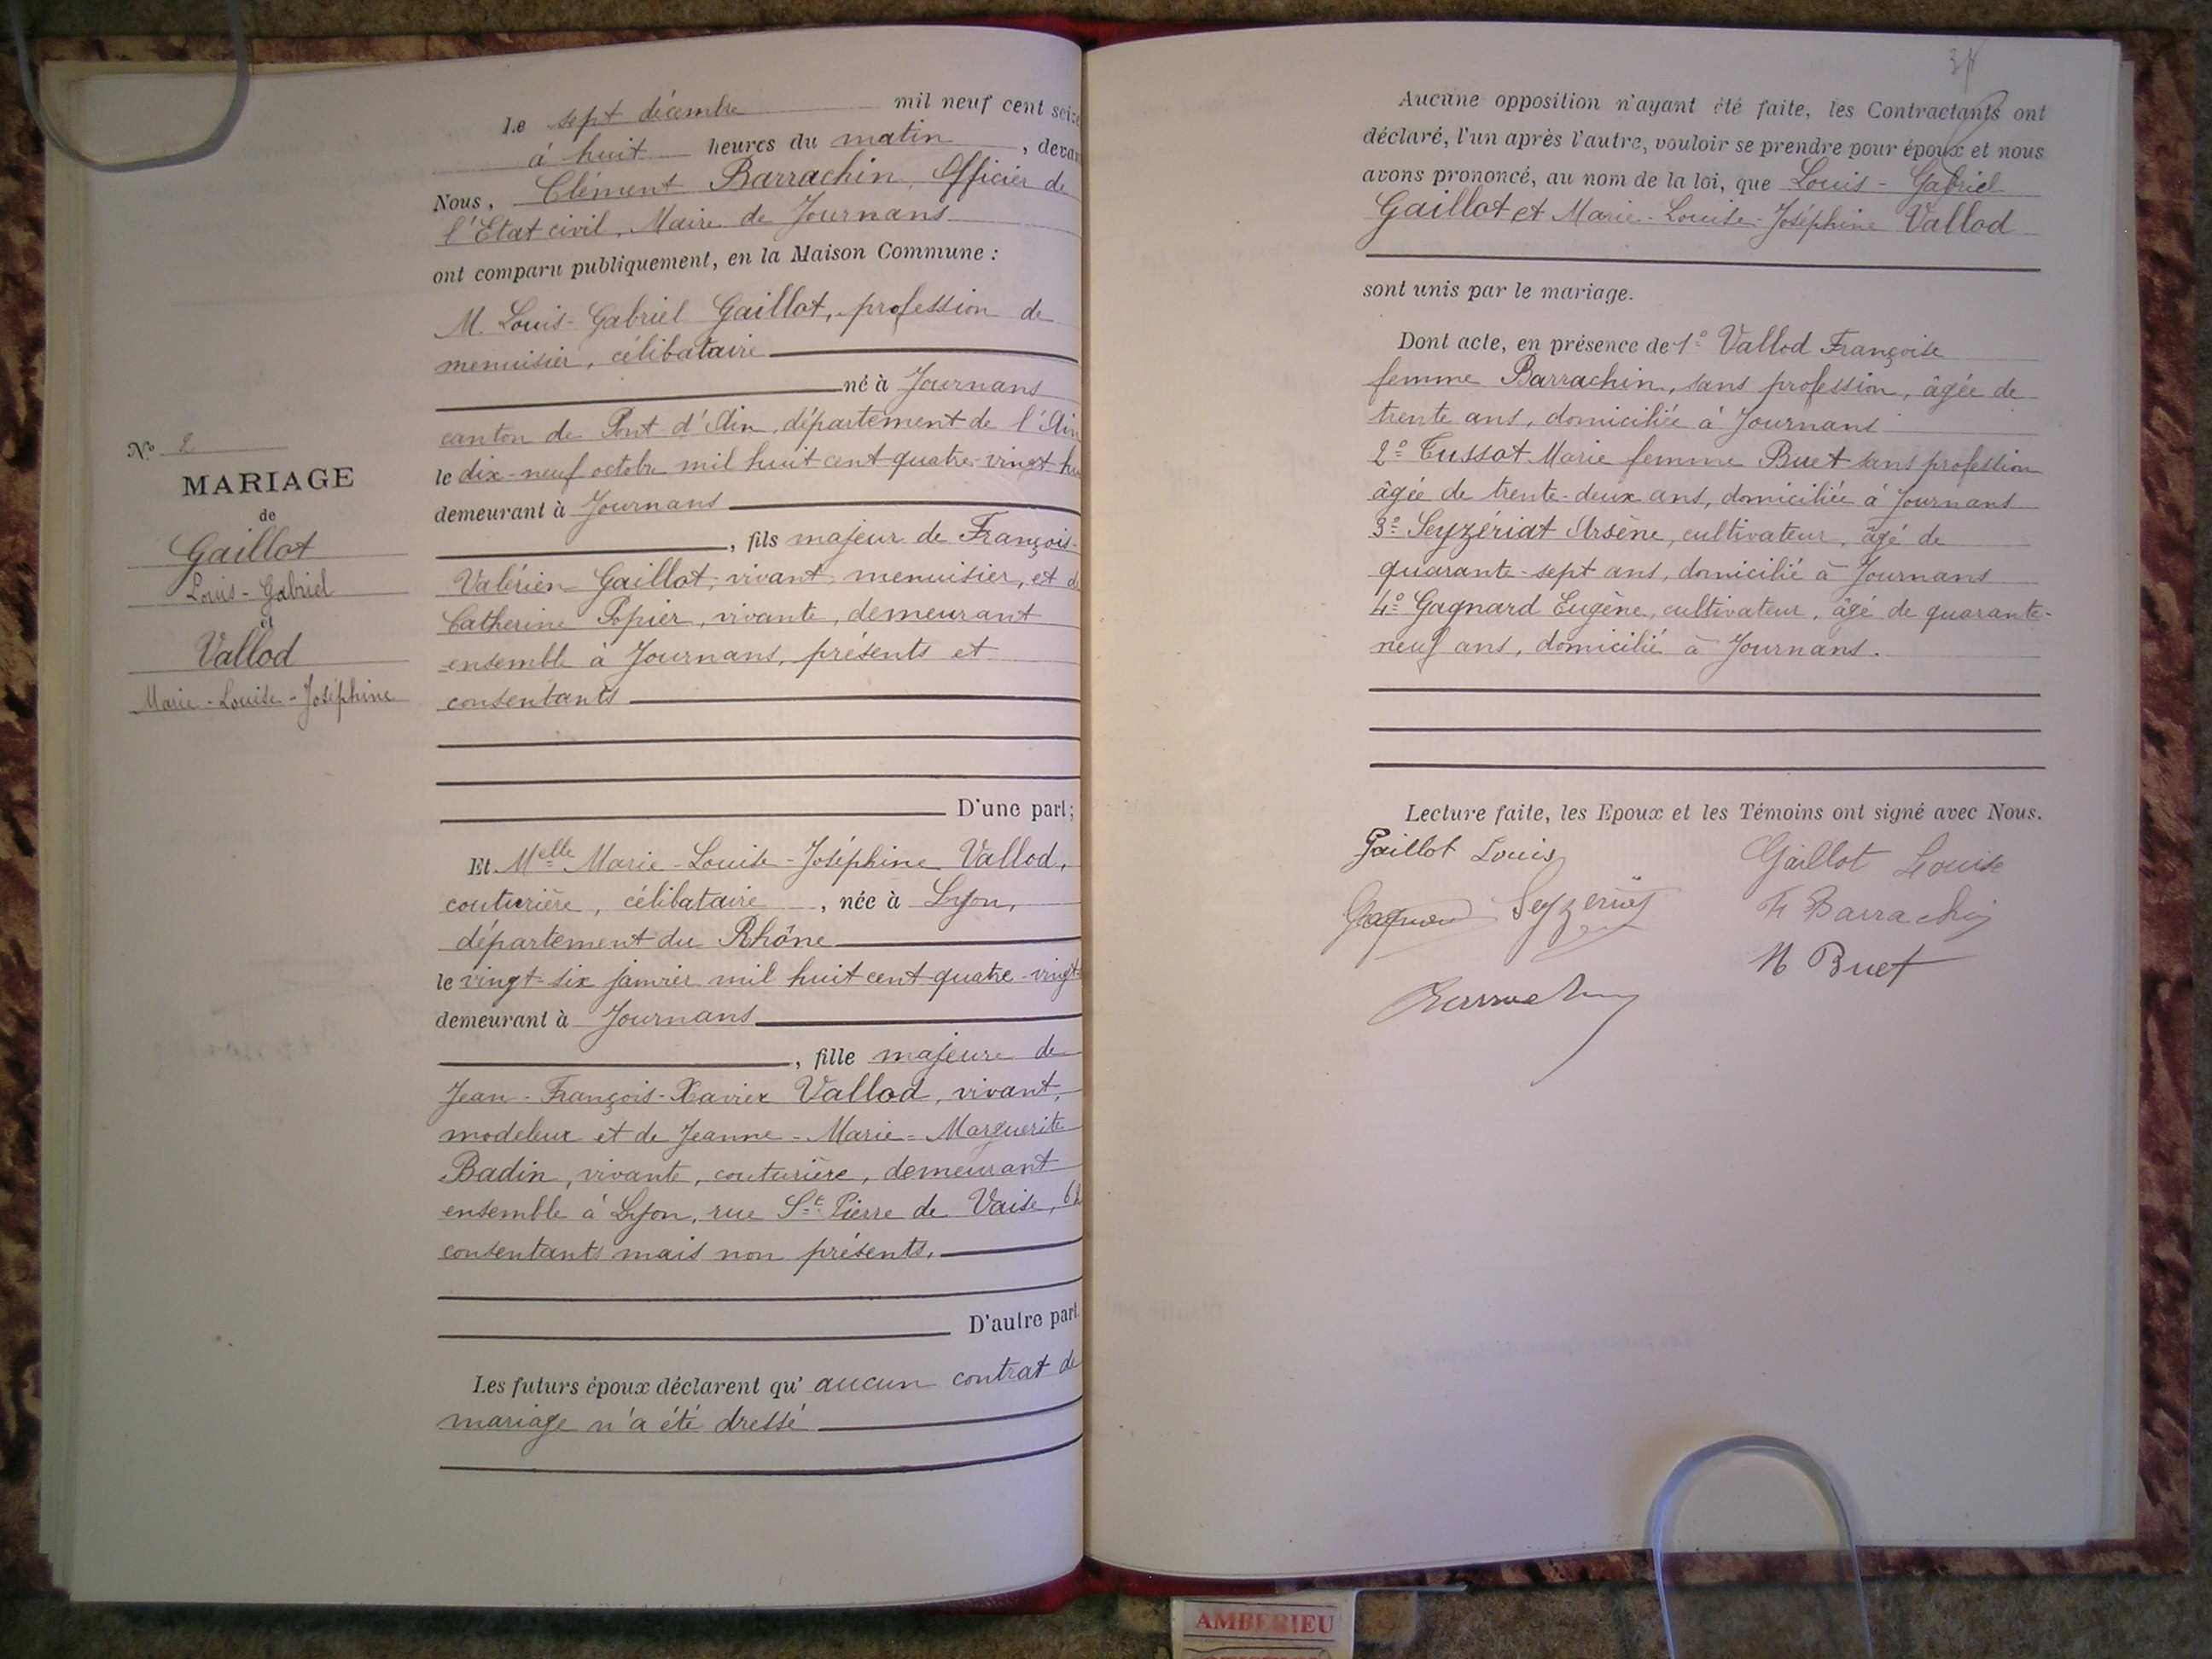 N° 2
MARIAGE
de
Gaillot
Louis-Gabriel
et
Vallod
Marie-Louise-Joséphine
Le sept décembre mil neuf cent seize
à huit heures du matin, devan
Nous, Clément Barrachin, Officier de
l'Etat civil, Maire de Journans
ont comparu publiquement, en la Maison Commune :
M. Louis-Gabriel Gaillot, profession de
menuisier, célibataire
né à Journans
canton de Pont-d'Ain, département de l'Ain
le dix-neuf octobre mil huit cent quatre-vingt-hu
demeurant à Journans
, fils majeur de François-
Valérien Gaillot, vivant, menuisier, et de
Catherine Popier, vivante, demeurant
ensemble à Journans, présents et
consentants
D'une part;
Et Melle Marie-Louise-Joséphine Vallod,
couturière, célibataire, née à Lyon,
département du Rhône
le vingt-six janvier mil huit cent quatre-vingt
demeurant à Journans
, fille majeure de
Jean-François-Xavier Vallod, vivant,
modeleur et de Jeanne-Marie-Marguerite
Badin, vivante, couturière, demeurant
ensemble à Lyon, rue St Pierre de Vaise, 62
consentants mais non présents.
D'autre part.
Les futurs époux déclarent qu'aucun contrat de
mariage n'a été dressé
Aucune opposition n'ayant été faite, les Contractants ont
déclaré, l'un après l'autre, vouloir se prendre pour époux et nous
avons prononcé, au nom de la loi, que Louis-Gabriel
Gaillot et Marie-Louise-Joséphine Vallod
sont unis par le mariage.
Dont acte, en présence de 1° Vallod Françoise
femme Barrachin, sans profession, âgée de
trente ans, domiciliée à Journans
2° Tussot Marie femme Buet sans profession
âgée de trente-deux ans, domiciliée à Journans
3° Seyzériat Arsène, cultivateur, âgé de
quarante-sept ans, domicilié à Journans
4° Gagnard Eugène, cultivateur, âgé de quarante-
neuf ans, domicilié à Journans.
Lecture faite, les Epoux et les Témoins ont signé avec Nous.
Gaillot Louis Gaillot Louise
Seyzeriat F Barrachin
M Buet
Barrachin
AMBERIEU